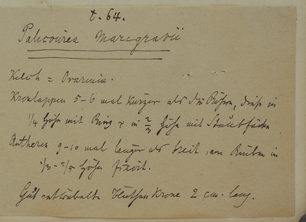 t. 64.
Palicourea Marcgravii
Kelch = Ovarium.
Kronlappen 5-6 mal kürzer als die Röhre, diese in
1/4 Höhe mit Ring u in 2/3 Höhe mit Staubfäden
Anthere 9-10 mal länger als breit, am Rücken in
1/3 - 2/5 Höhe fixirt.
Gut entwickelte Krone 2 cm lang.